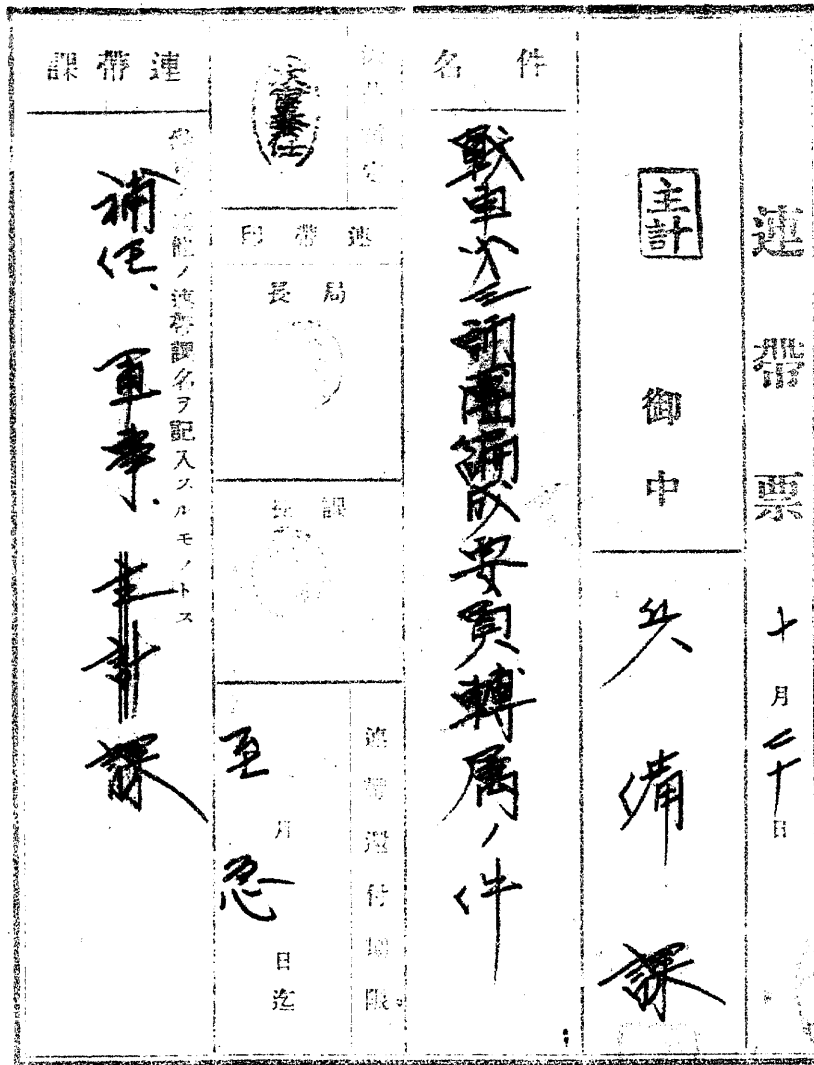 連帶票 十月二十日
主計 御中
兵備課
件名
戰車第三師團編成要員轉属ノ件
決裁
次官委任
連帶印
局長
課長
連帶還付期限
至急 月 日迄
連帶課
ノ連帶課名ヲ記入スルモノトス
補任、軍事、主計課